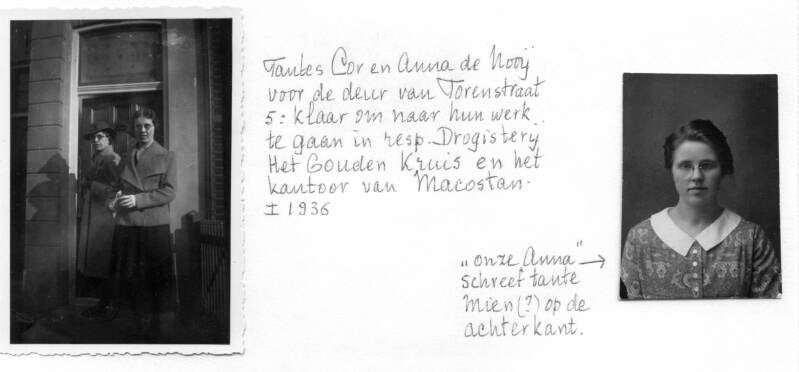 Tantes Cor en Anna de Nooij
voor de deur van Torenstraat
5: klaar om naar hun werk
te gaan in resp. Drogistery
Het Gouden Kruis en het
kantoor van Macostan.
± 1936
„onze Anna" →
schreef tante
Mien (?) op de
achterkant.